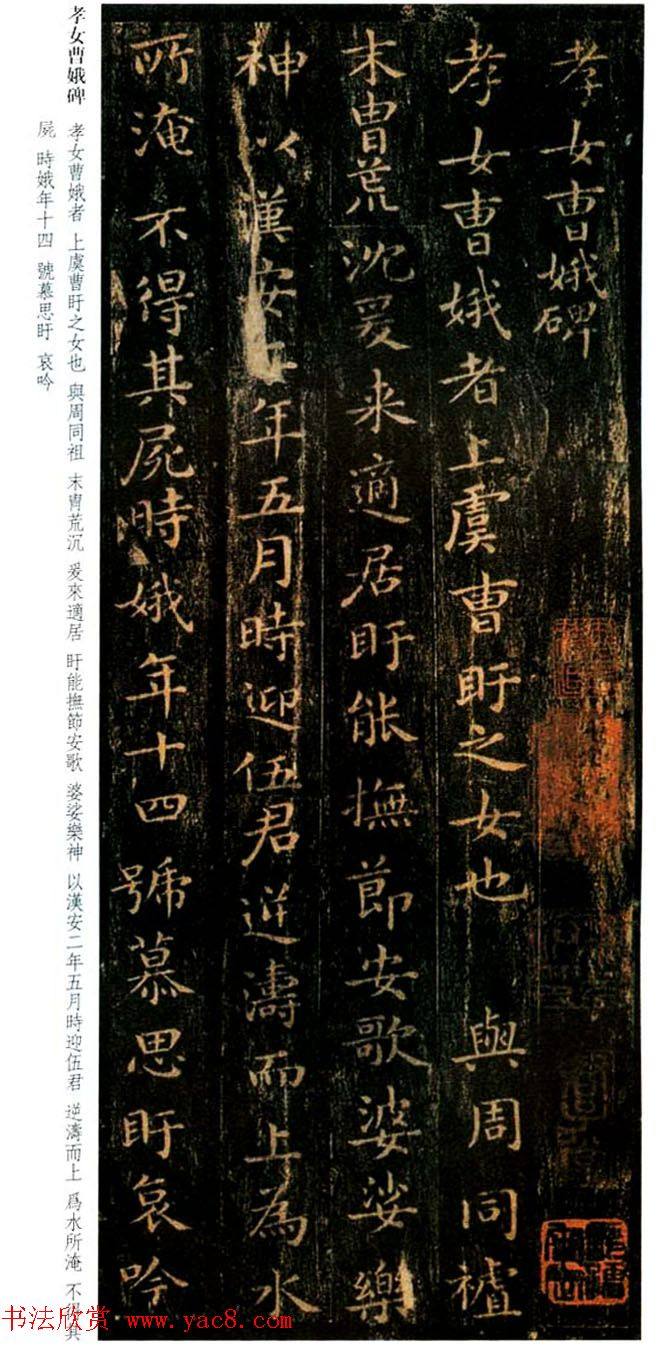 孝女曹娥碑
孝女曹娥者上虞曹盱之女也 與周同祖
末胄荒沈爰来適居盱能撫節安歌婆娑樂
神以漢安二年五月時迎伍君逆濤而上為水
所淹 不得其屍時娥年十四號慕思盱哀吟
孝女曹娥碑
孝女曹娥者 上虞曹盱之女也 與周同祖 末胄荒沉 爰來適居 盱能撫節安歌 婆娑樂神 以漢安二年五月時迎伍君 逆濤而上 爲水所淹 不得其
屍 時娥年十四 號慕思盱 哀吟
书法欣赏 www.yac8.com